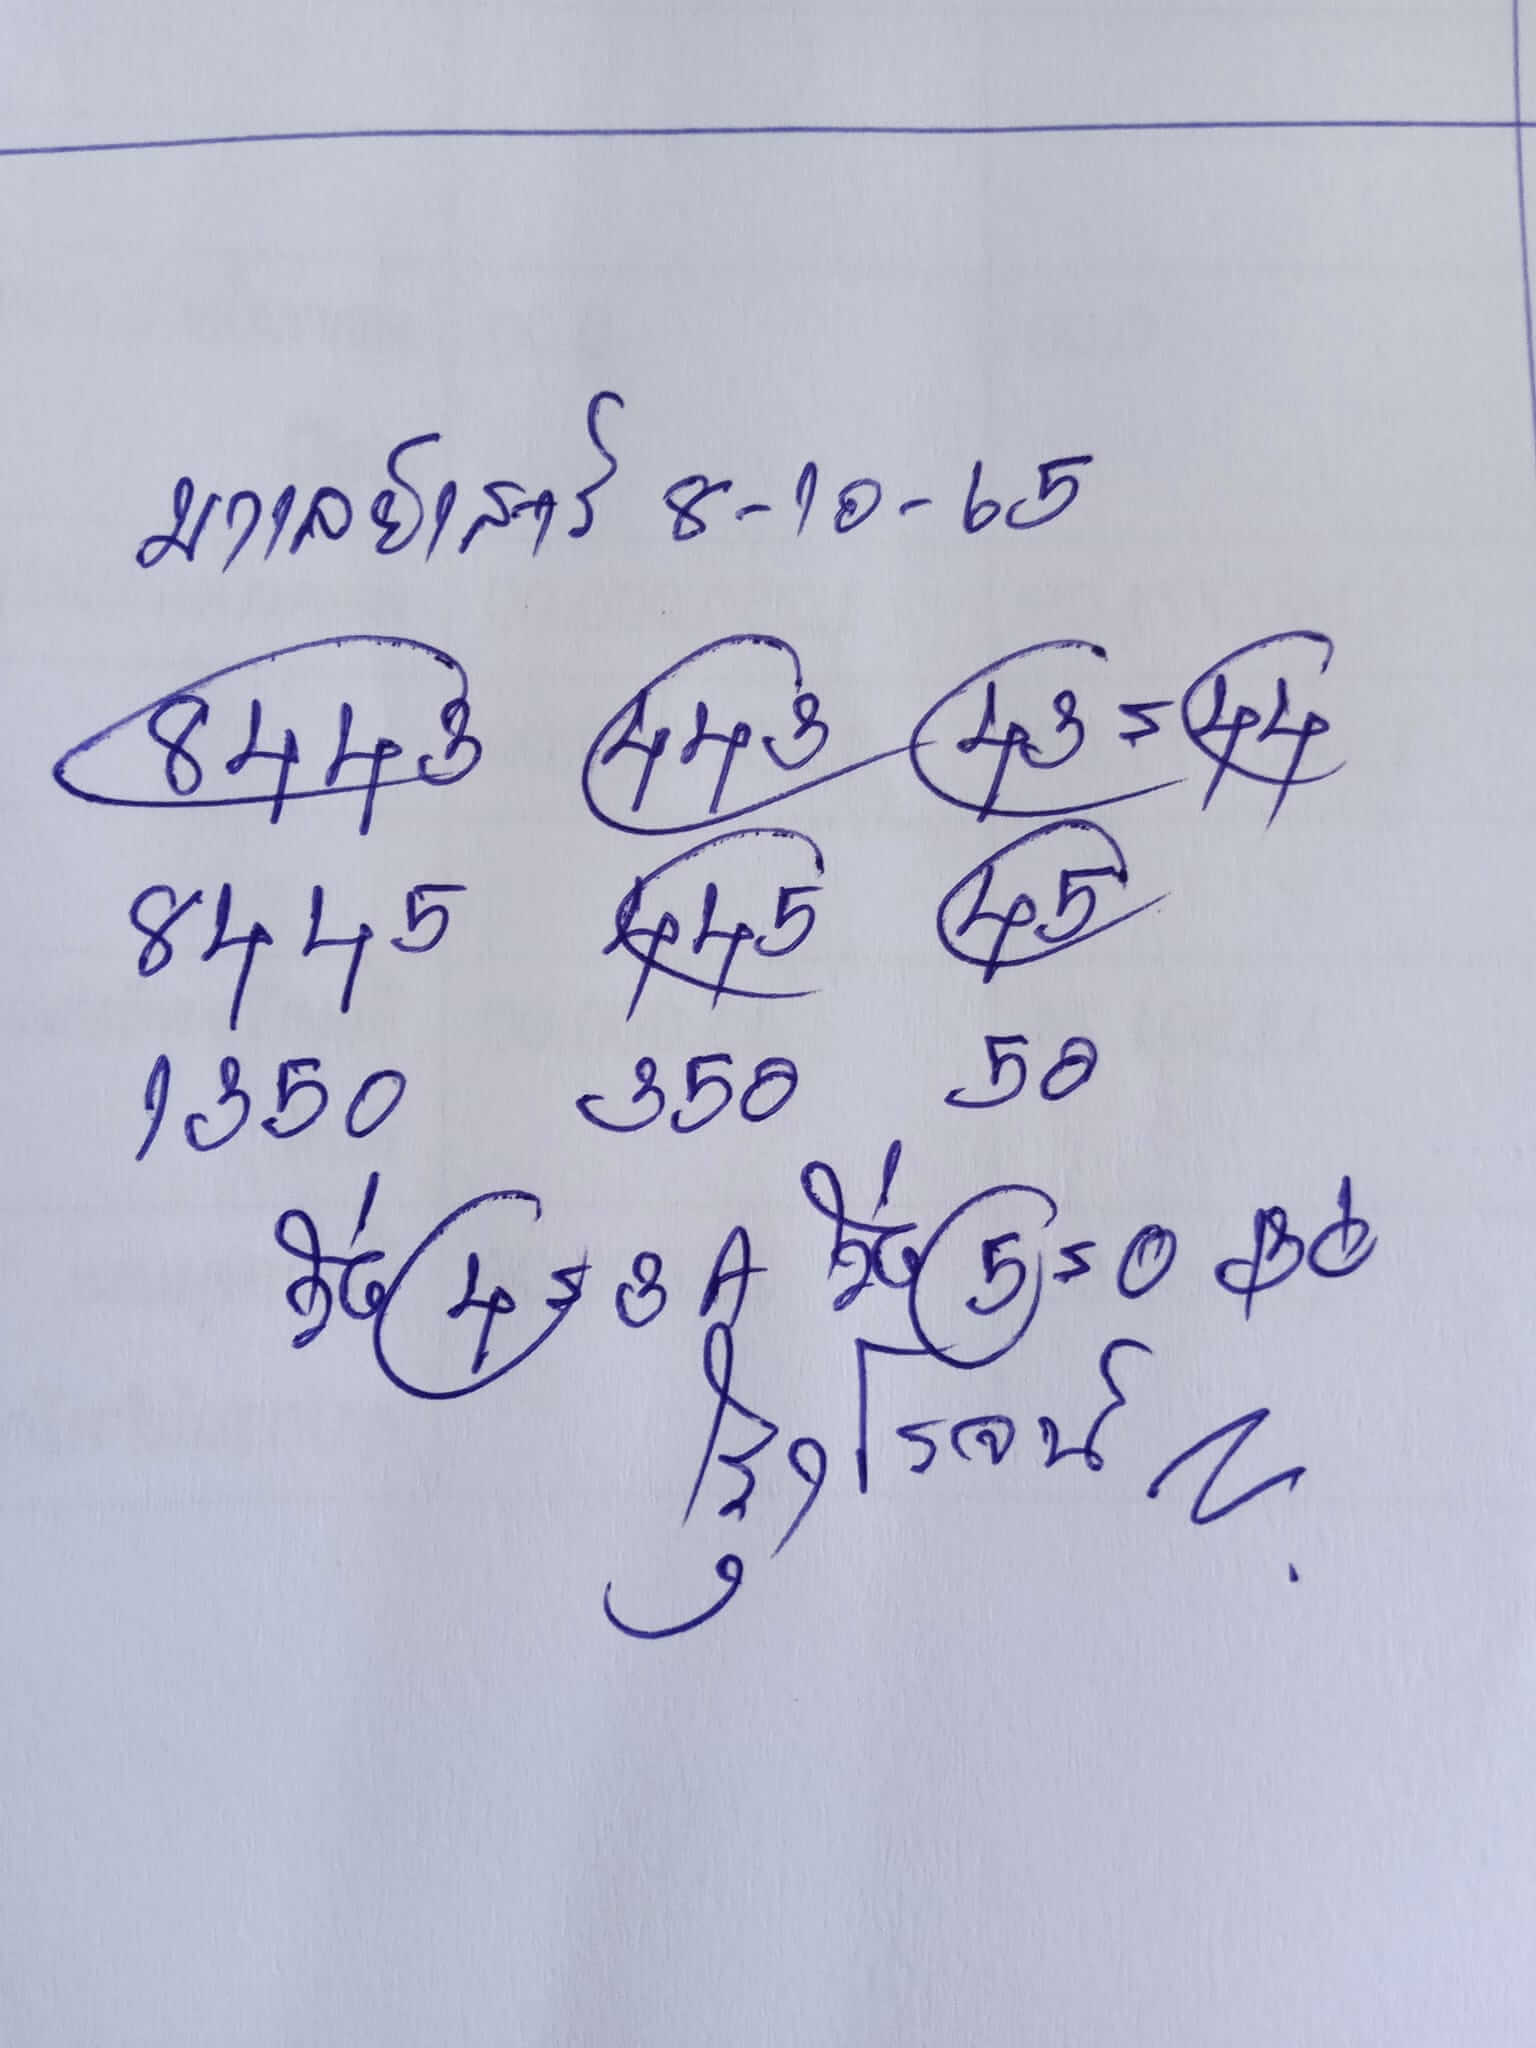 มาเลย์เสาร์ 8-10-65
8443 443 43 = 44
8445 445 45
1350 350 50
วิ่ง 4 = 3 A วิ่ง 5 = 0
โรจน์